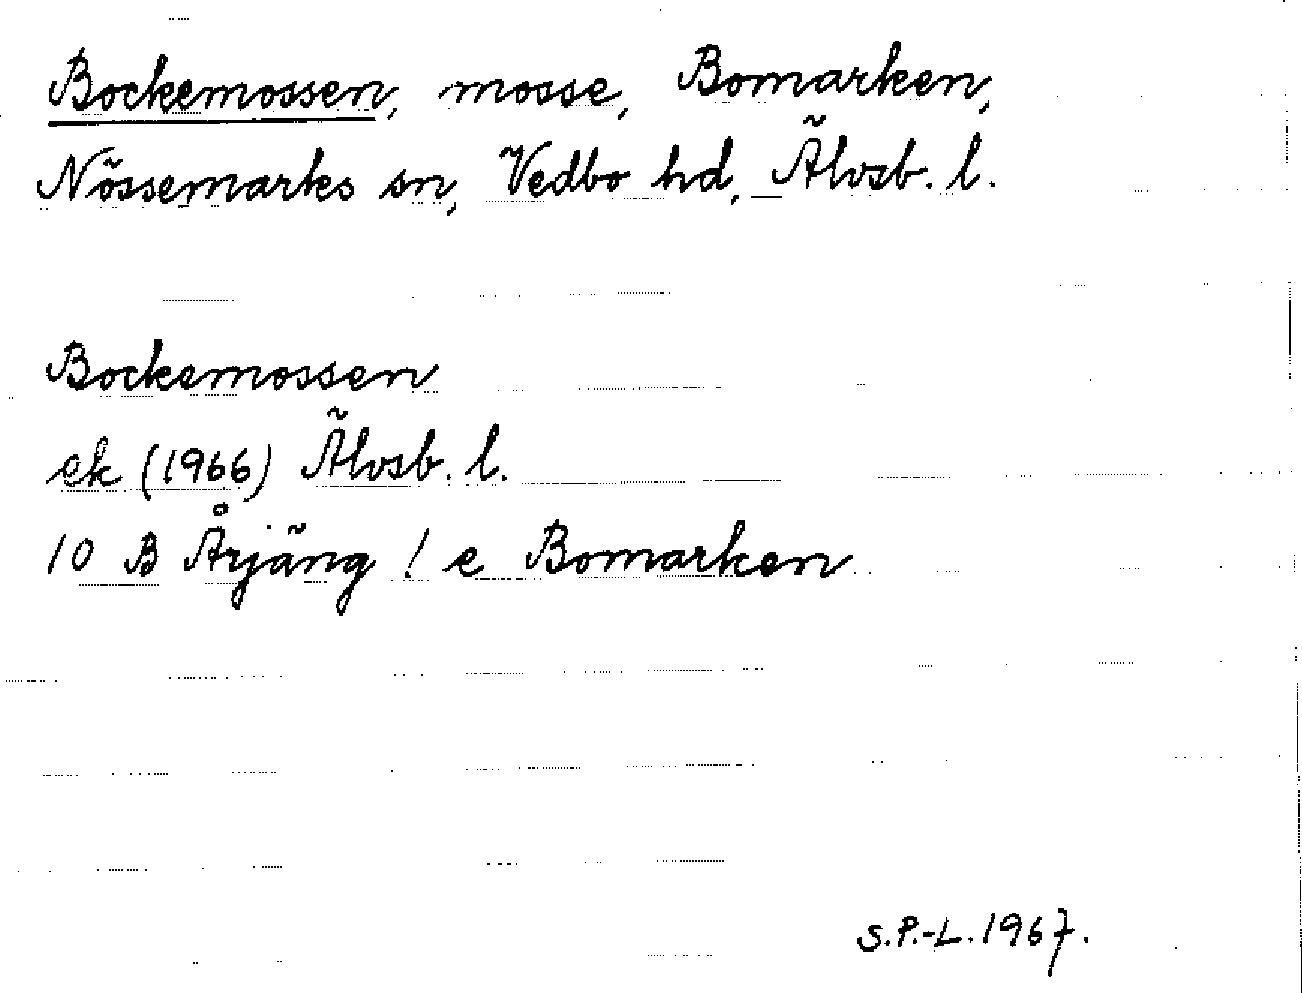 Bockemossen, mosse, Bomarken,
Nössemarks sn, Vedbo hd, Älvsb. l.
Bockemossen
ek (1966) Älvsb. l.
10 B Årjäng / e Bomarken
S.P.-L. 1967.